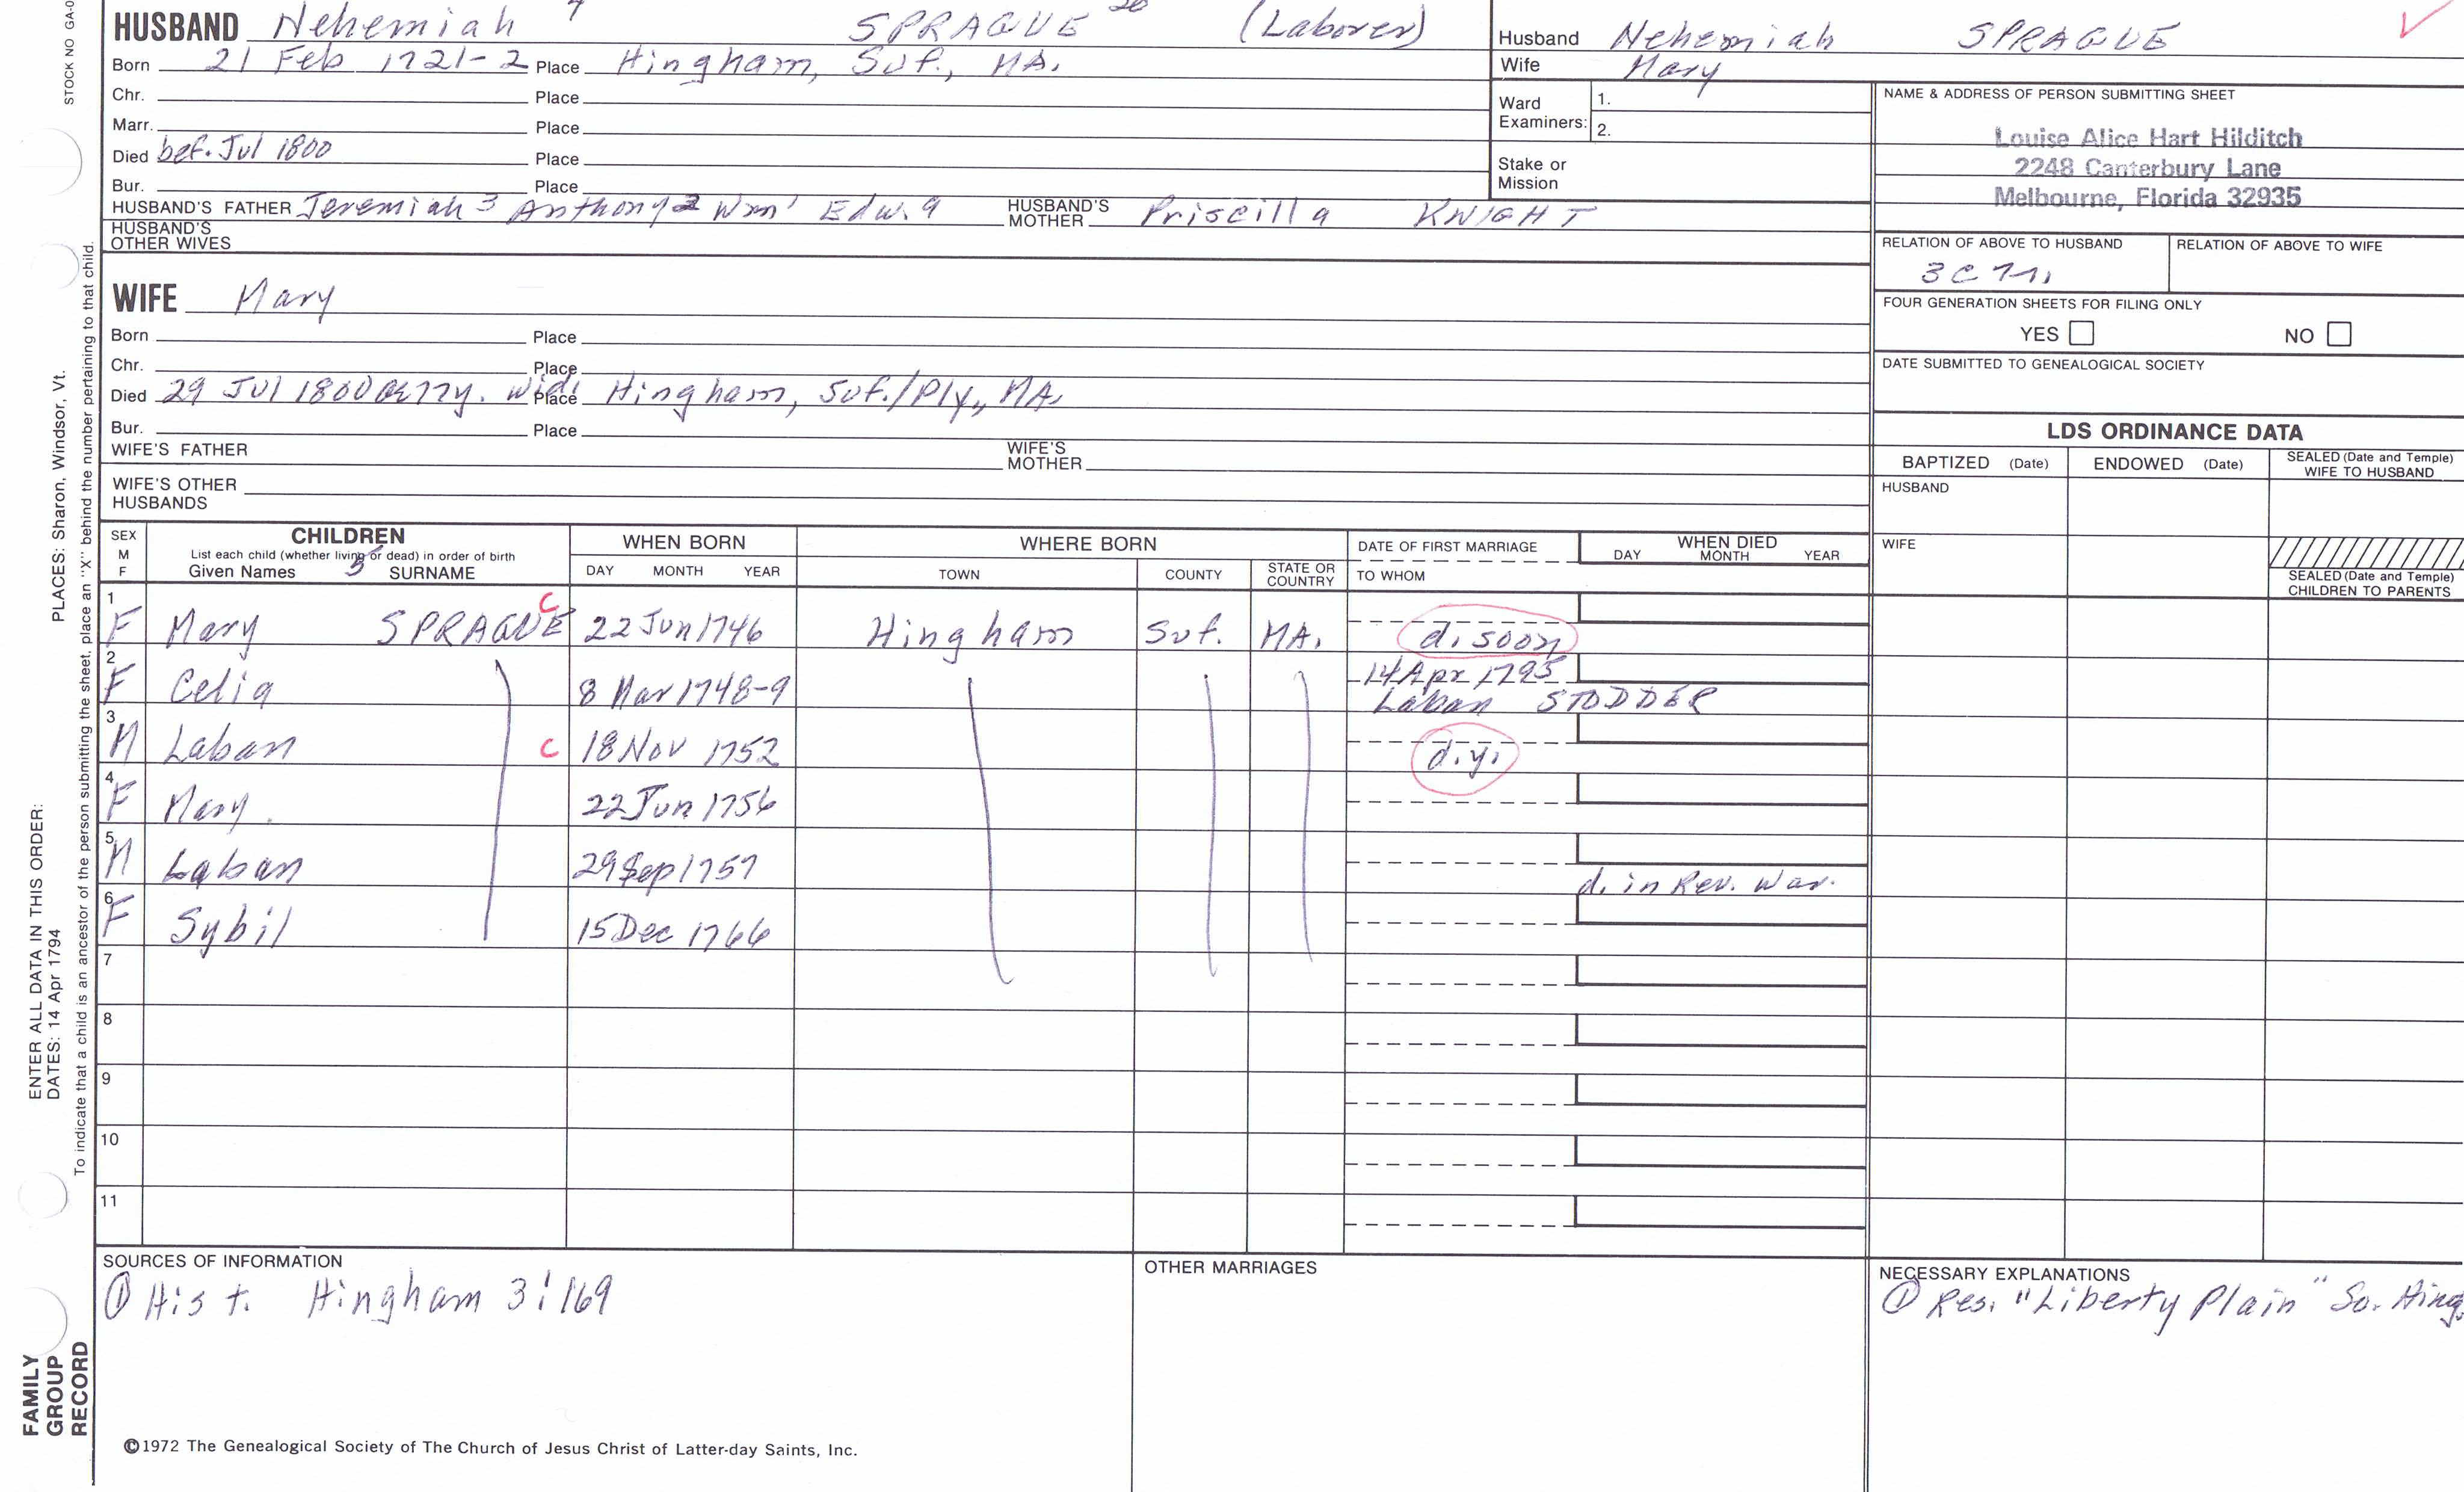 STOCK NO GA-0
HUSBAND Nehemiah SPRAGUE 26 (Laborer)
Born 21 Feb 1721-2 Place Hingham, Suf., MA.
Chr. Place
Marr. Place
Died bef. Jul 1800 Place
Bur. Place
HUSBAND'S FATHER Jeremiah 3 Anthony 2 Wm 1 Edw. a HUSBAND'S MOTHER Priscilla KNIGHT
HUSBAND'S OTHER WIVES
Husband Nehemiah SPRAGUE
Wife Mary
Ward Examiners: 1.
2.
Stake or Mission
NAME & ADDRESS OF PERSON SUBMITTING SHEET
Louise Alice Hart Hilditch
2248 Canterbury Lane
Melbourne, Florida 32935
RELATION OF ABOVE TO HUSBAND
RELATION OF ABOVE TO WIFE
FOUR GENERATION SHEETS FOR FILING ONLY
YES NO
DATE SUBMITTED TO GENEALOGICAL SOCIETY
WIFE Mary
Born Place
Chr. Place
Died 29 Jul 1800 77y. wid. Place Hingham, Suf./Ply., MA.
Bur. Place
WIFE'S FATHER WIFE'S MOTHER
WIFE'S OTHER HUSBANDS
LDS ORDINANCE DATA
BAPTIZED (Date) ENDOWED (Date) SEALED (Date and Temple) WIFE TO HUSBAND
HUSBAND
WIFE
SEALED (Date and Temple) CHILDREN TO PARENTS
SEX M F
CHILDREN
List each child (whether living or dead) in order of birth
Given Names 5 SURNAME
WHEN BORN
DAY MONTH YEAR
WHERE BORN
TOWN COUNTY STATE OR COUNTRY
DATE OF FIRST MARRIAGE
TO WHOM
WHEN DIED
DAY MONTH YEAR
1 F Mary SPRAGUE C 22 Jun 1746 Hingham Suf. MA. d. soon
2 F Celia 8 Mar 1748-9 14 Apr 1795
Laban STODDER
3 M Laban C 18 Nov 1752 d.y.
4 F Mary. 22 Jun 1756
5 M Laban 29 Sep 1757 d. in Rev. War.
6 F Sybil 15 Dec 1766
7
8
9
10
11
SOURCES OF INFORMATION
① Hist. Hingham 3:169
OTHER MARRIAGES
NECESSARY EXPLANATIONS
① Res. "Liberty Plain" So. Hing.
©1972 The Genealogical Society of The Church of Jesus Christ of Latter-day Saints, Inc.
FAMILY GROUP RECORD
ENTER ALL DATA IN THIS ORDER:
DATES: 14 Apr 1794
PLACES: Sharon, Windsor, Vt.
To indicate that a child is an ancestor of the person submitting the sheet, place an "X" behind the number pertaining to that child.